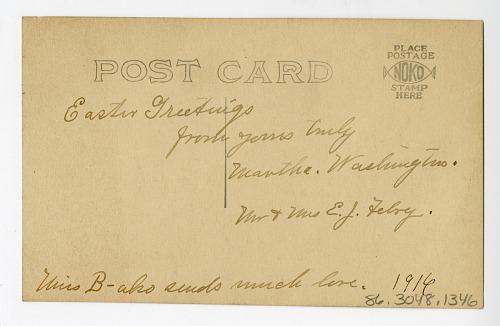 POST CARD
PLACE
POSTAGE
NOKO
STAMP
HERE
Easter Greetings
from yours truly
Martha. Washington.
Mr & Mrs E. J.
Miss B- also sends much love. 1916
86.3048.1346